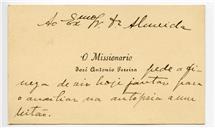 Ao Ex.mo Sr. Dr. Almeida
O Missionario
José Antonio Pereira pede a fi-
neza de vir hoje jantar para
o auxiliar na autopsia a um
leitão.